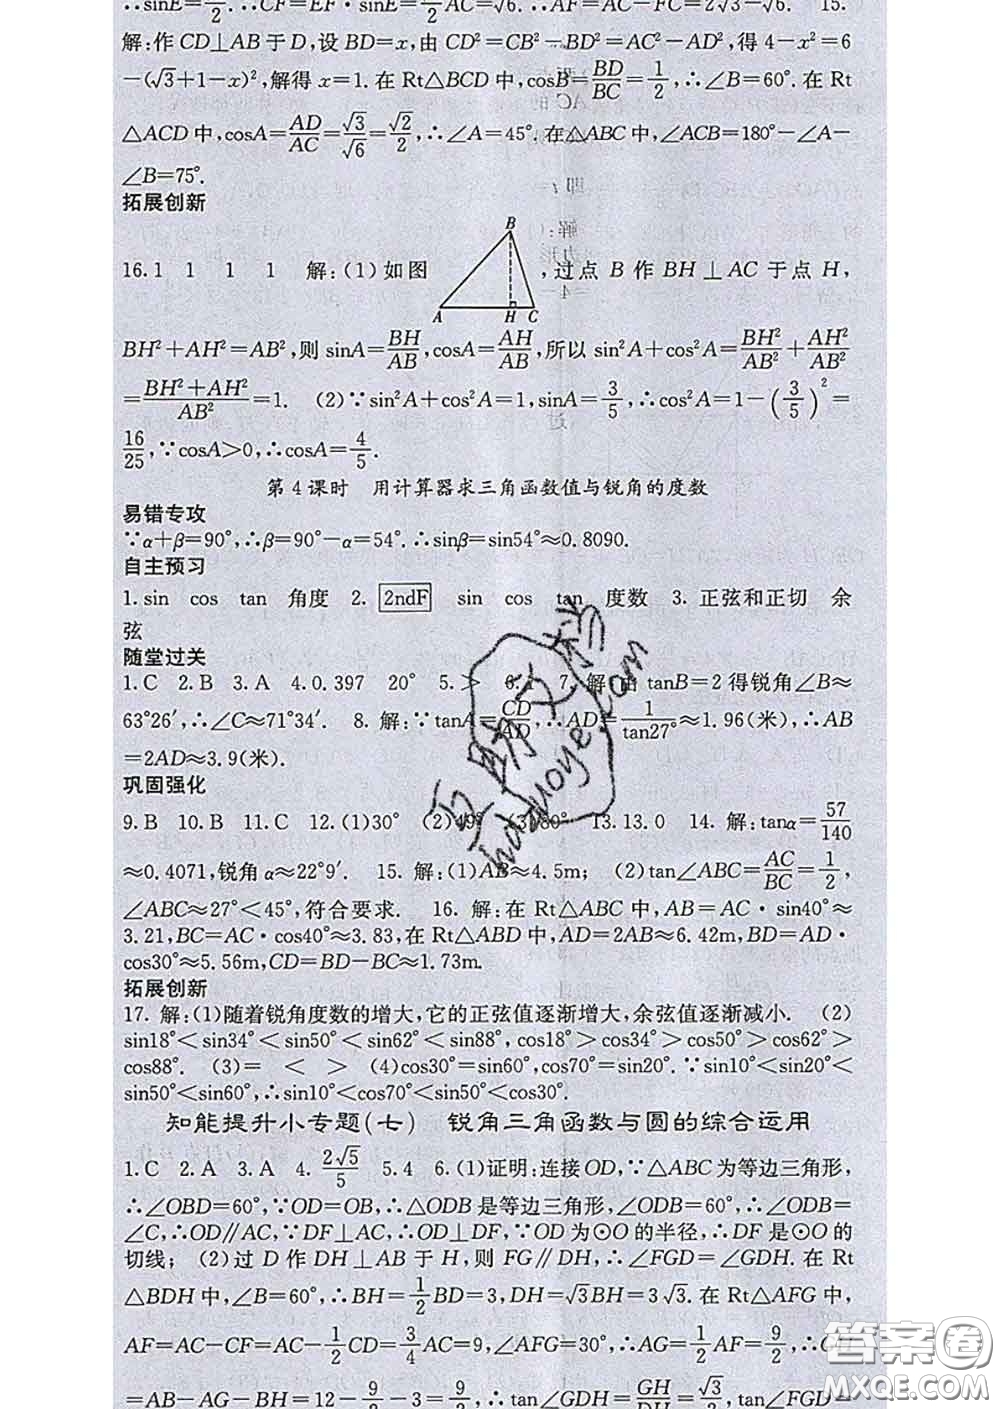 ∴sinE=—/2.∴CF=EF·sinE=—/2 AC=√6.∴AF=AC-FC=2√3-√6. 15.
解:作CD⊥AB于D,设BD=x,由CD²=CB²-BD²=AC²-AD²,得4-x²=6
-(√3+1-x)²,解得x=1.在Rt△BCD中,cosB=BD/BC=1/2,∴∠B=60°.在Rt
△ACD中,cosA=AD/AC=√3/√6=√2/2,∴∠A=45°.在△ABC中,∠ACB=180°-∠A-
∠B=75°.
拓展创新
B
16.1 1 1 1 解:(1)如图 ,过点B作BH⊥AC于点H,
A H C
BH²+AH²=AB²,则sinA=BH/AB,cosA=AH/AB,所以sin²A+cos²A=BH²/AB²+AH²/AB²
=(BH²+AH²)/AB²=1. (2)∵sin²A+cos²A=1,sinA=3/5,∴cos²A=1-(3/5)²=
16/25,∵cosA>0,∴cosA=4/5.
第4课时 用计算器求三角函数值与锐角的度数
易错专攻
∵α+β=90°,∴β=90°-α=54°.∴sinβ=sin54°≈0.8090.
自主预习
1.sin cos tan 角度 2. 2ndF sin cos tan 度数 3. 正弦和正切 余
弦
随堂过关
1.C 2.B 3.A 4.0.397 20° 5.> 7. 解:由tanB=2得锐角∠B≈
63°26′,∴∠C≈71°34′. 8. 解:∵tanA=CD/AD,∴AD=1/tan27°≈1.96(米),∴AB
=2AD≈3.9(米).
巩固强化
9.B 10.B 11.C 12.(1)30° (2)49° (3)80° 13.13.0 14. 解:tanα=57/140
≈0.4071,锐角α≈22°9′. 15. 解:(1)AB≈4.5m; (2)tan∠ABC=AC/BC=1/2,
∠ABC≈27°<45°,符合要求. 16. 解:在Rt△ABC中,AB=AC·sin40°≈
3.21,BC=AC·cos40°≈3.83,在Rt△ABD中,AD=2AB≈6.42m,BD=AD·
cos30°≈5.56m,CD=BD-BC≈1.73m.
拓展创新
17. 解:(1)随着锐角度数的增大,它的正弦值逐渐增大,余弦值逐渐减小. (2)
sin18°<sin34°<sin50°<sin62°<sin88°,cos18°>cos34°>cos50°>cos62°>
cos88°. (3)= < > (4)cos30°=sin60°,cos70°=sin20°.∵sin10°<sin20°<
sin50°<sin60°,∴sin10°<cos70°<sin50°<cos30°.
知能提升小专题(七) 锐角三角函数与圆的综合运用
1.C 2.A 3.A 4. 2√5/5 5.4 6.(1)证明:连接OD,∵△ABC为等边三角形,
∴∠OBD=60°,∵OD=OB,∴△ODB是等边三角形,∠ODB=60°,∴∠ODB=
∠C,∴OD∥AC,∵DF⊥AC,∴OD⊥DF,∵OD为⊙O的半径,∴DF是⊙O的
切线; (2)过D作DH⊥AB于H,则FG∥DH,∴∠FGD=∠GDH.在Rt
△BDH中,∠B=60°,∴BH=1/2BD=3,DH=√3BH=3√3.在Rt△AFG中,
AF=AC-CF=AC-1/2CD=3/4AC=9,∠AFG=30°,∴AG=1/2AF=9/2,∴GH
=AB-AG-BH=12-9/2-3=9/2,∴tan∠GDH=GH/DH=√3/2,tan∠FGD=
答案圈
MXQE.COM